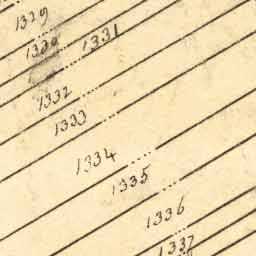 1329
1330
1331
1332
1333
1334
1335
1336
1337